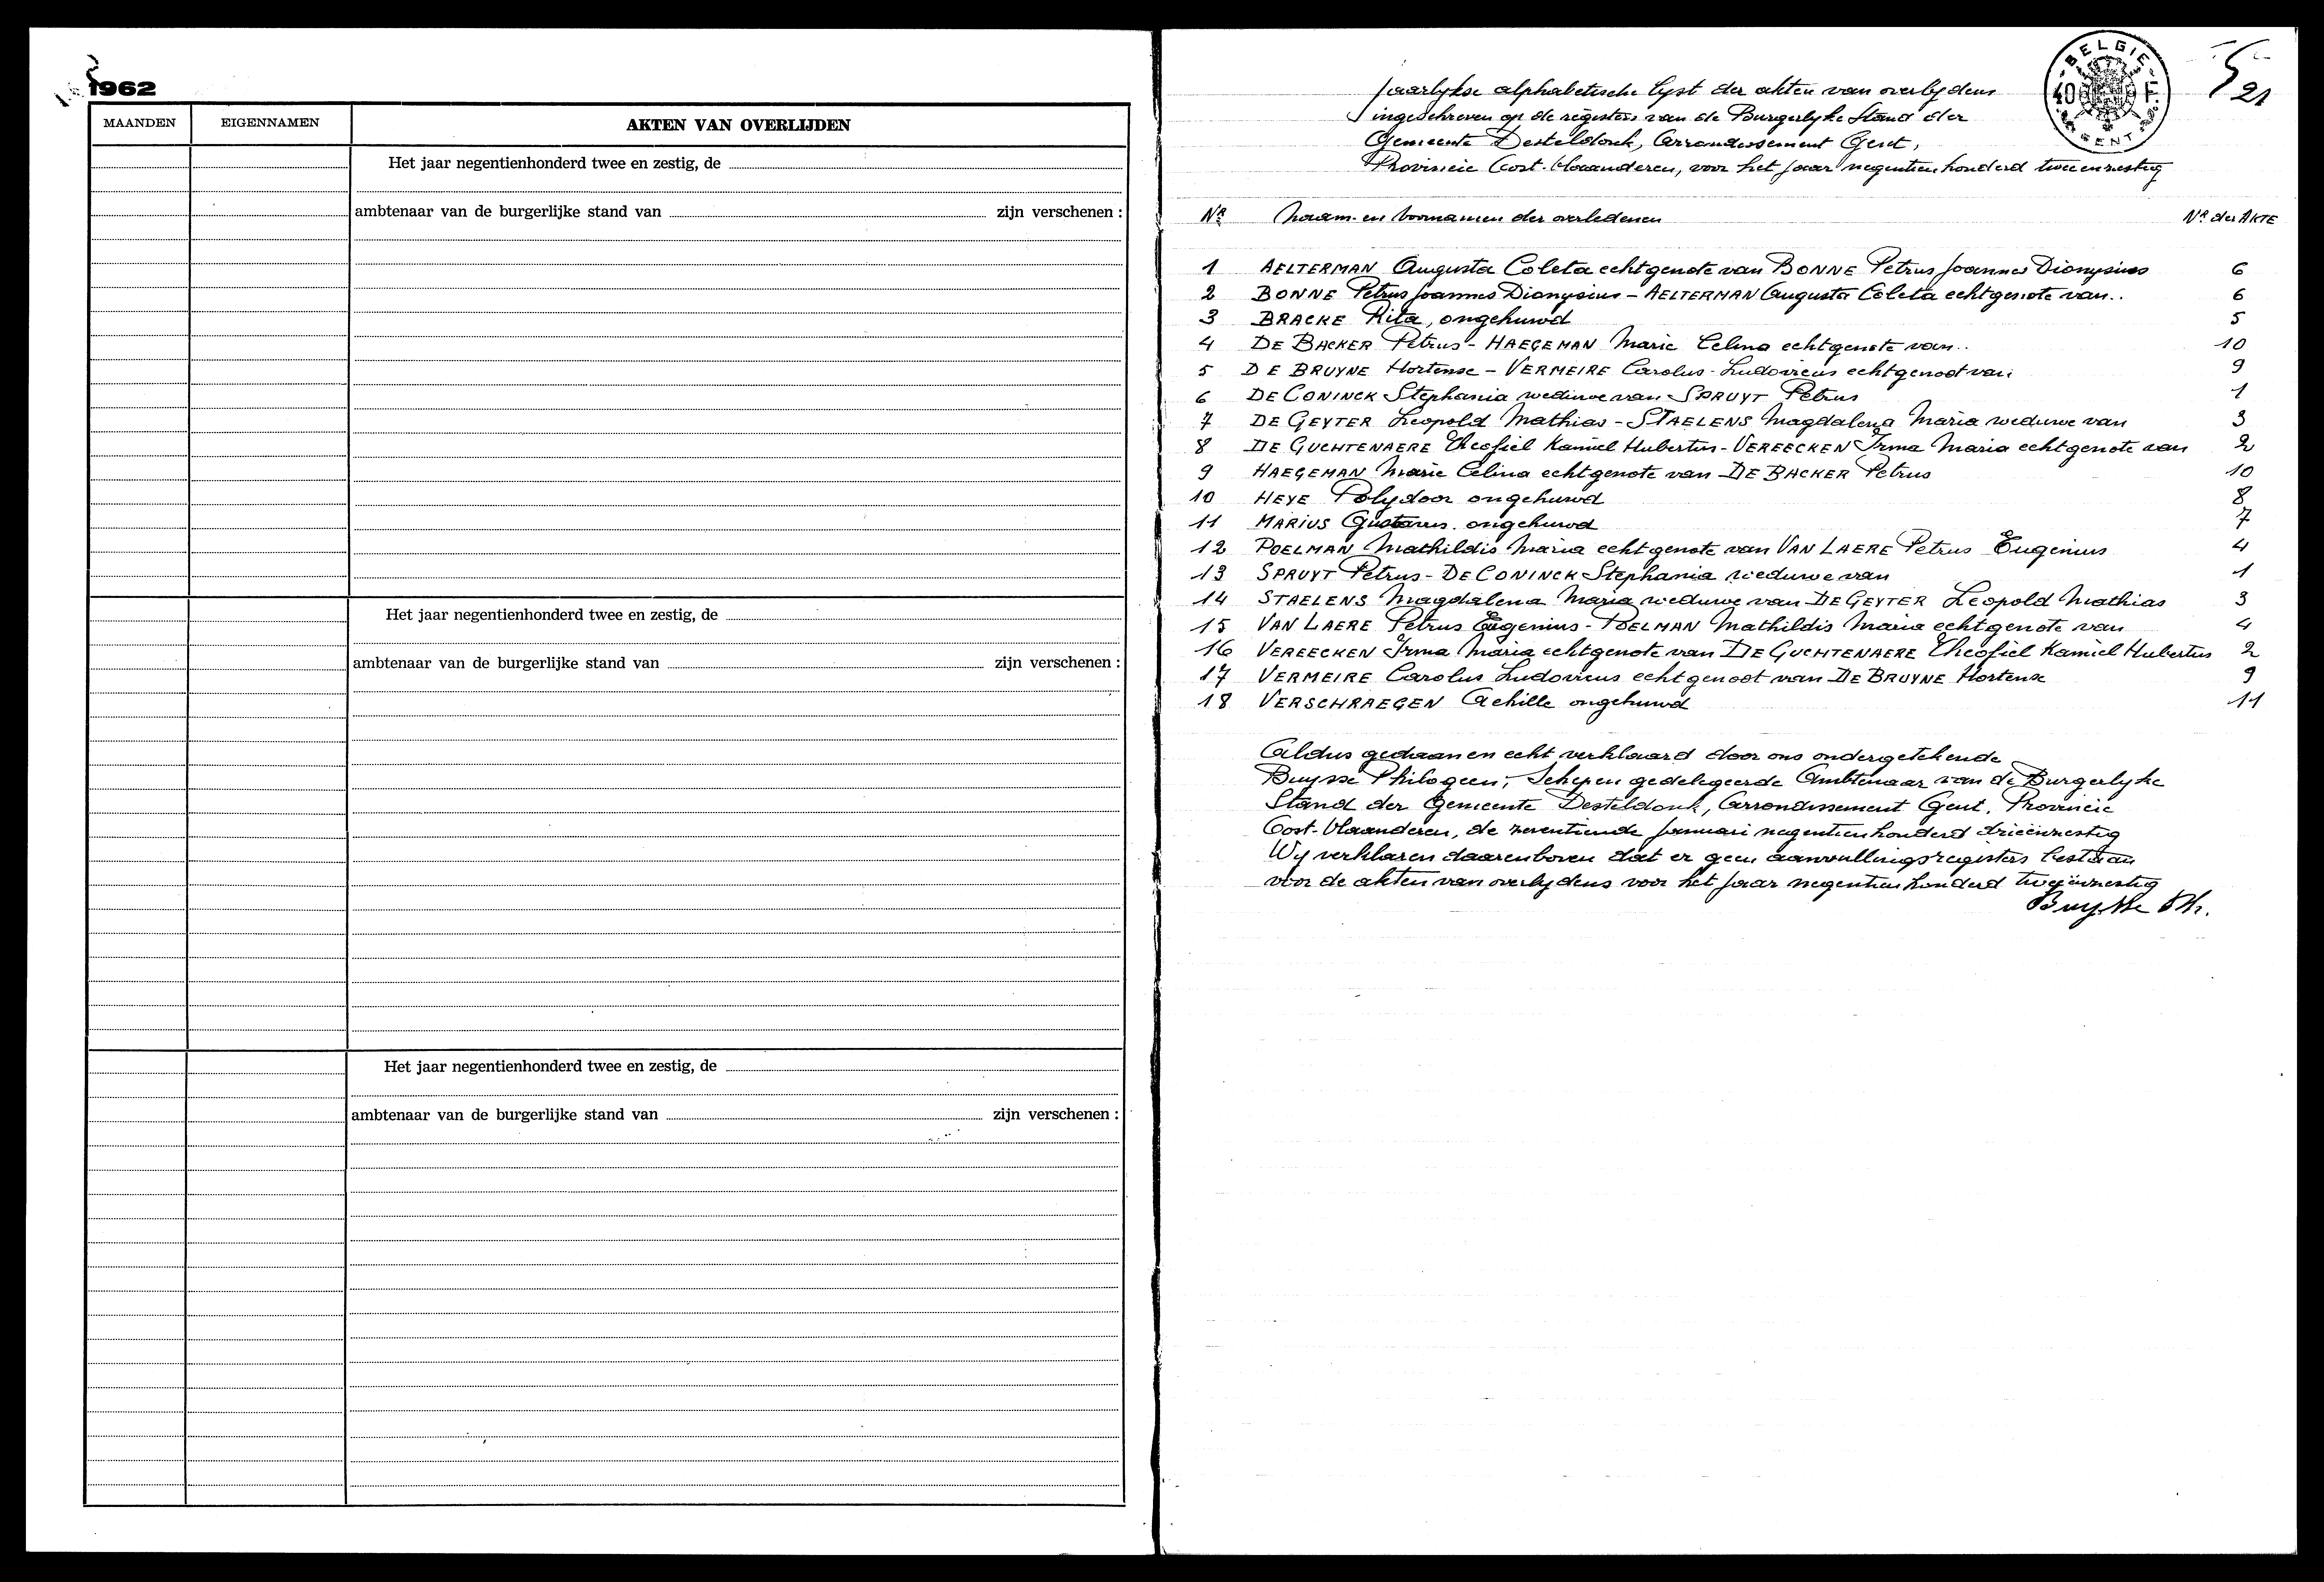 1962
MAANDEN EIGENNAMEN AKTEN VAN OVERLIJDEN
Het jaar negentienhonderd twee en zestig, de
ambtenaar van de burgerlijke stand van zijn verschenen :
Het jaar negentienhonderd twee en zestig, de
ambtenaar van de burgerlijke stand van zijn verschenen :
Het jaar negentienhonderd twee en zestig, de
ambtenaar van de burgerlijke stand van zijn verschenen :
BELGIE
40 F
GENT
21
Jaarlykse alphabetische lyst der akten van overlydens
ingeschreven op de registers van de Burgerlyke Stand der
Gemeente Desteldonk, Arrondissement Gent,
Provincie Oost-Vlaanderen, voor het jaar negentienhonderd tweeenzestig
Nr Naam en Voornamen der overledenen Nr der AKTE
1 AELTERMAN Augusta Coleta echtgenote van BONNE Petrus Joannes Dionysius 6
2 BONNE Petrus Joannes Dionysius - AELTERMAN Augusta Coleta echtgenote van.. 6
3 BRACKE Rita, ongehuwd 5
4 DE BACKER Petrus - HAEGEMAN Marie Celina echtgenote van.. 10
5 DE BRUYNE Hortense - VERMEIRE Carolus-Ludovicus echtgenoot van 9
6 DE CONINCK Stephania weduwe van SPRUYT Petrus 1
7 DE GEYTER Leopold Mathias - STAELENS Magdalena Maria weduwe van 3
8 DE GUCHTENAERE Theofiel Kamiel Hubertus - VEREECKEN Irma Maria echtgenote van 2
9 HAEGEMAN Marie Celina echtgenote van DE BACKER Petrus 10
10 HEYE Polydoor ongehuwd 8
11 MARIUS Gustavus ongehuwd 7
12 POELMAN Mathildis Maria echtgenote van VAN LAERE Petrus Eugenius 4
13 SPRUYT Petrus - DE CONINCK Stephania weduwe van 1
14 STAELENS Magdalena Maria weduwe van DE GEYTER Leopold Mathias 3
15 VAN LAERE Petrus Eugenius - POELMAN Mathildis Maria echtgenote van 4
16 VEREECKEN Irma Maria echtgenote van DE GUCHTENAERE Theofiel Kamiel Hubertus 2
17 VERMEIRE Carolus Ludovicus echtgenoot van DE BRUYNE Hortense 9
18 VERSCHRAEGEN Achille ongehuwd 11
Aldus gedaan en echt verklaard door ons ondergetekende
Buysse Philogeen, Schepen gedelegeerde Ambtenaar van de Burgerlyke
Stand der Gemeente Desteldonk, Arrondissement Gent, Provincie
Oost-Vlaanderen, de zeventiende januari negentienhonderd drieënzestig
Wy verklaren daarenboven dat er geen aanvullingsregisters bestaan
voor de akten van overlydens voor het jaar negentienhonderd tweeënzestig
Buysse Ph.